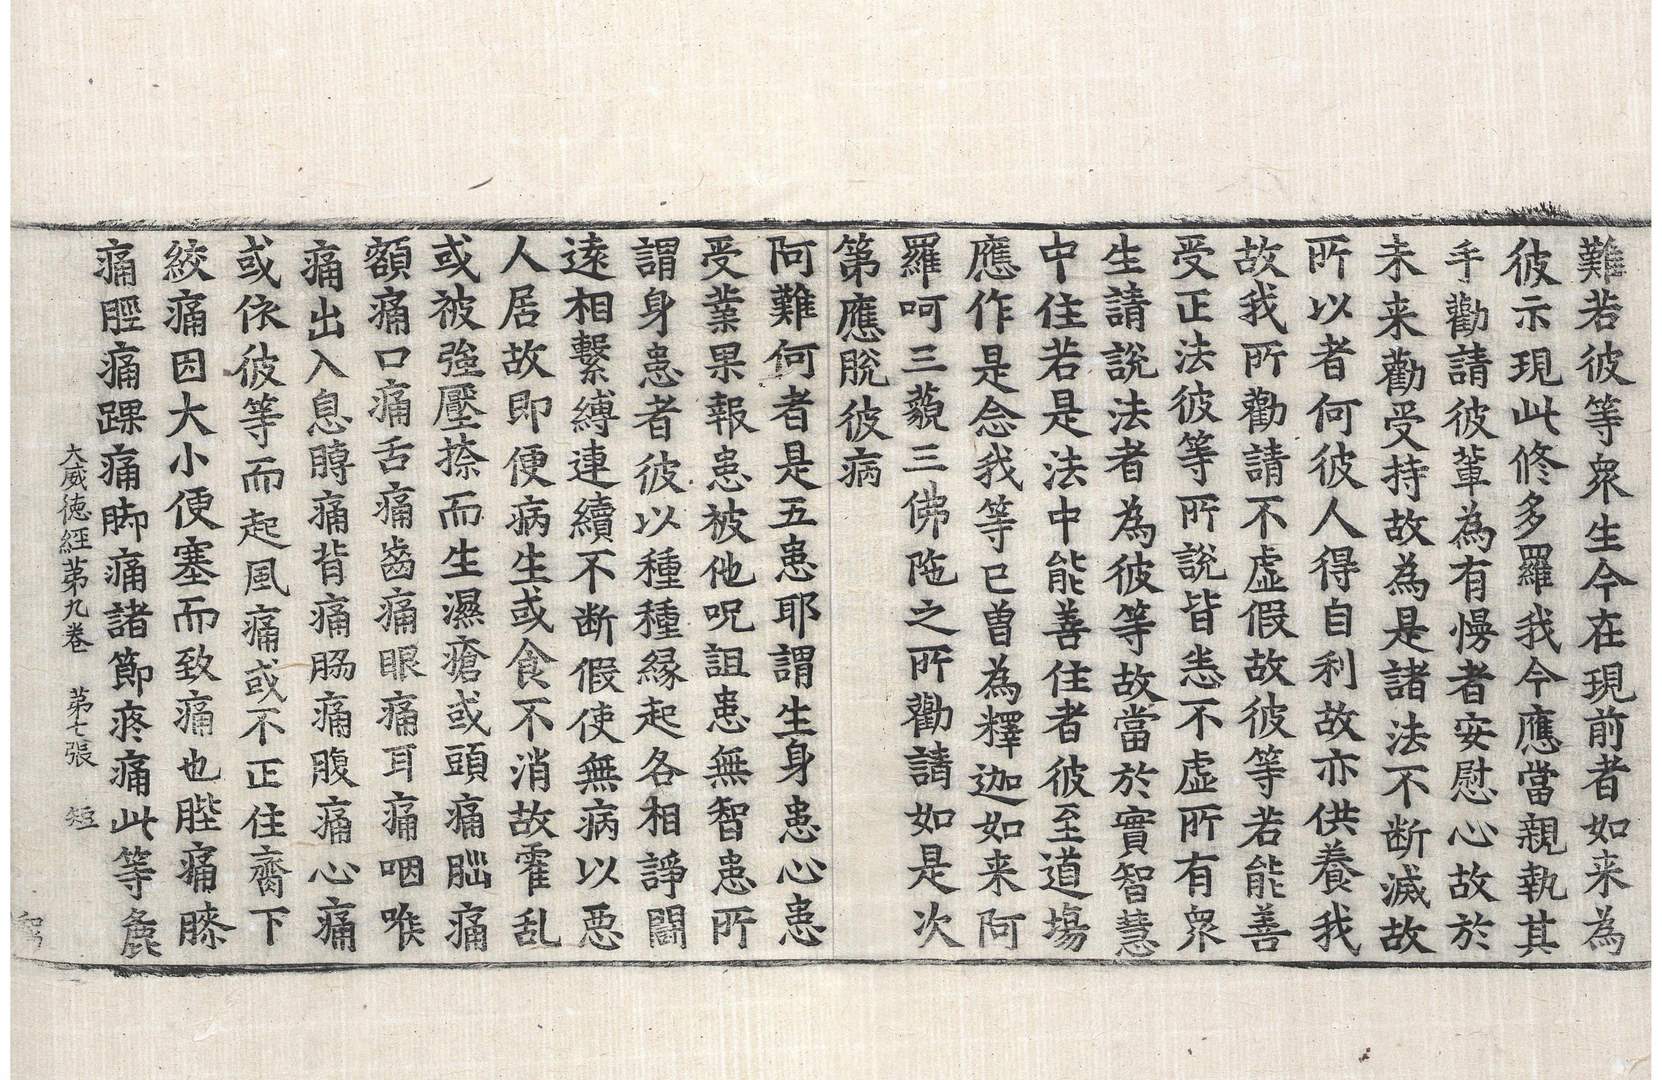 難若彼等衆生今在現前者如来為
彼示現此修多羅我今應當親執其
手勸請彼輩為有慢者安慰心故於
未来勸受持故為是諸法不断滅故
所以者何彼人得自利故亦供養我
故我所勸請不虚假故彼等若能善
受正法彼等所說皆悉不虚所有衆
生請說法者為彼等故當於實智慧
中住若是法中能善住者彼至道場
應作是念我等已曾為釋迦如来阿
羅呵三藐三佛陁之所勸請如是次
第應脫彼病
阿難何者是五患耶謂生身患心患
受業果報患被他呪詛患無智患所
謂身患者彼以種種縁起各相諍鬪
遠相繫縛連續不断假使無病以悪
人居故即便病生或食不消故霍乱
或被強壓捺而生濕瘡或頭痛腦痛
額痛口痛舌痛齒痛眼痛耳痛咽喉
痛出入息膞痛背痛脇痛腹痛心痛
或依彼等而起風痛或不正住齎下
絞痛因大小便塞而致痛也䏶痛膝
痛脛痛踝痛脚痛諸節疼痛此等麁
大威徳經第九卷 第七張 短